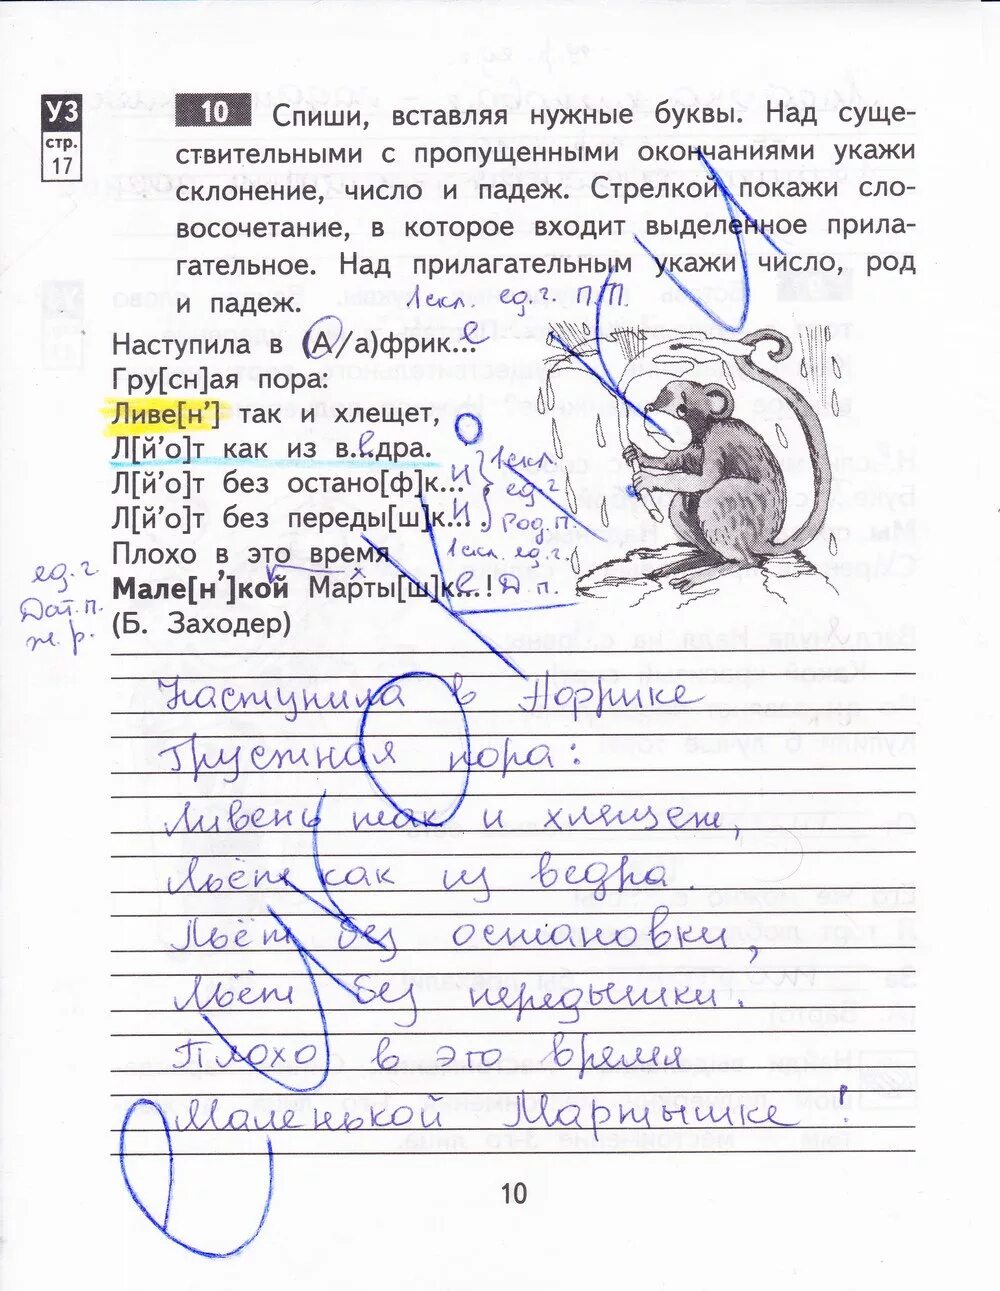 УЗ
стр.
17
10 Спиши, вставляя нужные буквы. Над суще-
ствительными с пропущенными окончаниями укажи
склонение, число и падеж. Стрелкой покажи сло-
восочетание, в которое входит выделенное прила-
гательное. Над прилагательным укажи число, род
и падеж.
1 скл. ед.ч. П.П.
Наступила в (А/а)фрик...е
Гру[сн]ая пора:
Ливе[н’] так и хлещет,
Л[й’о]т как из в.едра.
Л[й’о]т без остано[ф]к...и 1 скл.
ед.ч.
Л[й’о]т без переды[ш]к...и. Род.п.
Плохо в это время 1 скл. ед.ч.
ед.ч.
Дат.п.
ж.р.
Мале[н’]кой Марты[ш]к...е! Д.п.
(Б. Заходер)
Наступила в Африке
Грустная пора:
Ливень так и хлещет,
Льёт как из ведра.
Льёт без остановки,
Льёт без передышки.
Плохо в это время
Маленькой Мартышке!
10